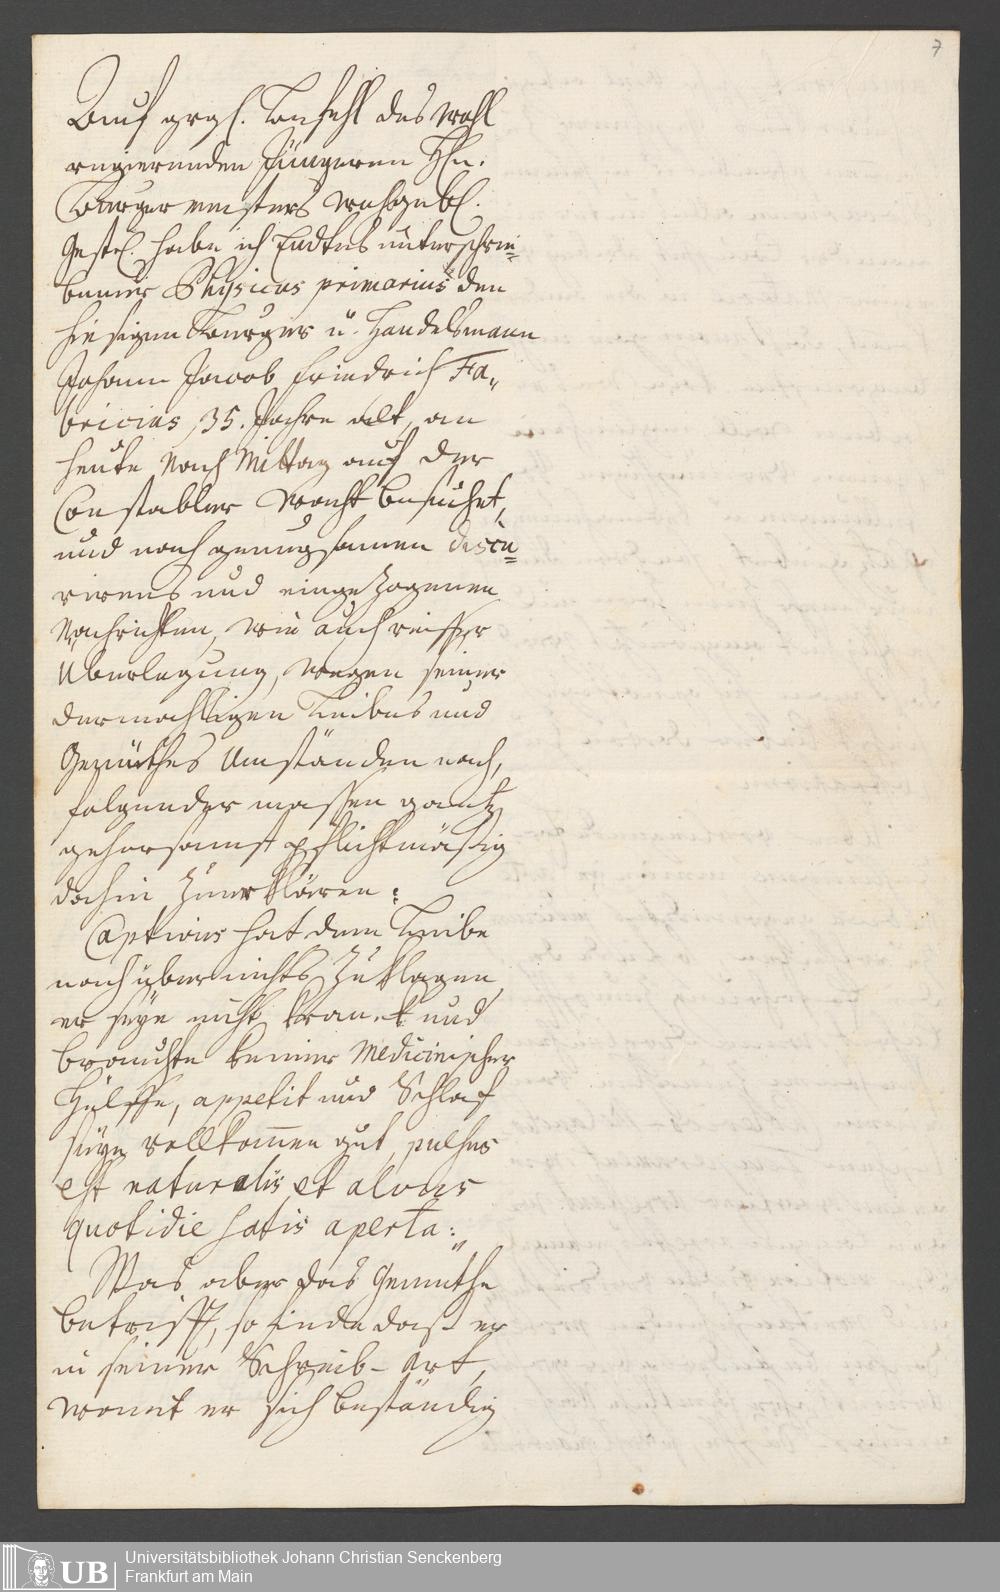 7
Auf grgl. Befehl des wohl
regierenden Jüngeren Hn.
Burgermeisters wohlgebl.
Gestl. habe ich Endts unterschrie-
bener Physicus primarius den
hiesigen Burger u. Handelsmann
Johann Jacob Friedrich Fa-
bricius, 35. Jahre alt, an
heute Nach Mittag auf der
Constabler Wacht besuchet,
und nach genugsamen discu-
rirens und eingezogenen
Nachrichten, wie auch reiffer
Überlegung, wegen seiner
dermahligen Leibes und
Gemüthes Umständen nach,
folgender massen gantz
gehorsamst pflichtmäsig
dahin zuerklären:
Captivus hat dem Leibe
nach über nichts zu klagen,
er seye nicht kranck und
brauchte keiner Medicinischer
Hülffe, appetit und Schlaf
seye vollkom̅en gut, pulsus
est naturalis et alvus
quotidie satis aperta:
Was aber das Gemüthe
betrifft, so finde daß er
in seiner Schreib-Art,
womit er sich beständig
Universitätsbibliothek Johann Christian Senckenberg
Frankfurt am Main
UB